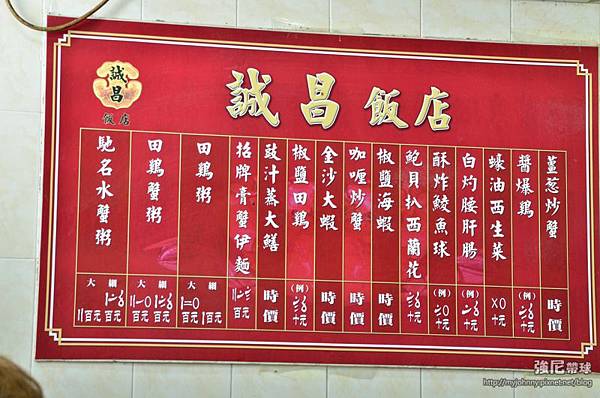 誠昌
飯店
誠昌飯店
薑葱炒蟹
時價
醬爆鷄
(例)
十元
蠔油西生菜
十元
白灼腰肝腸
(例)
十元
酥炸鯪魚球
(例)
十元
鮑貝扒西蘭花
十元
椒鹽海蝦
時價
咖喱炒蟹
時價
金沙大蝦
時價
椒鹽田鷄
(例)
十元
豉汁蒸大鱔
時價
招牌膏蟹伊麵
百元
田鷄粥
大 細
百元 百元
田鷄蟹粥
大 細
百元 百元
馳名水蟹粥
大 細
百元 百元
強尼帶球
http://myjohnny.pixnet.net/blog